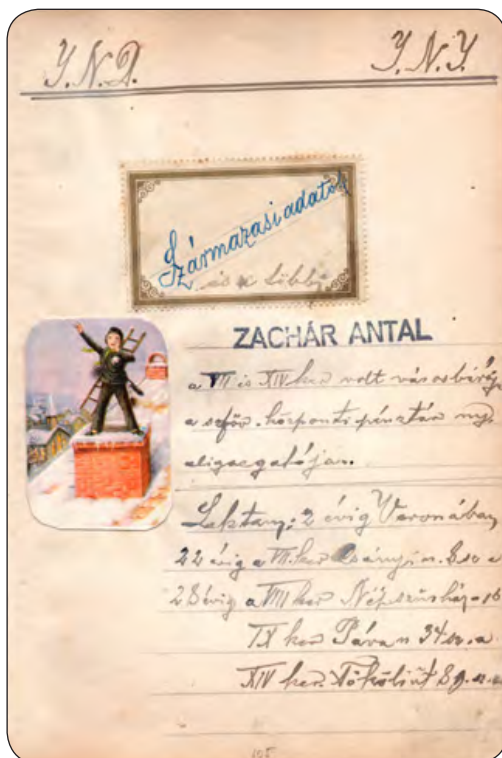 J.N.D. J.N.J.
Származasi adatok
és a többi
ZACHÁR ANTAL
a VII és XIV ker volt városbírája
a központi pénztár ny.
aligazgatója.
2 évig Veronában
22 évig a VII. ker Csányi u. 8 sz a
28 évig a VIII ker Népszínház u 16
IX ker Páva u 34 sz. a
XIV ker. Thököli út 89. sz. a.
105